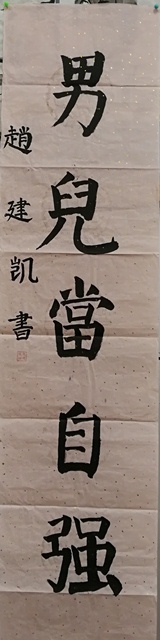 男兒當自强
趙建凯書